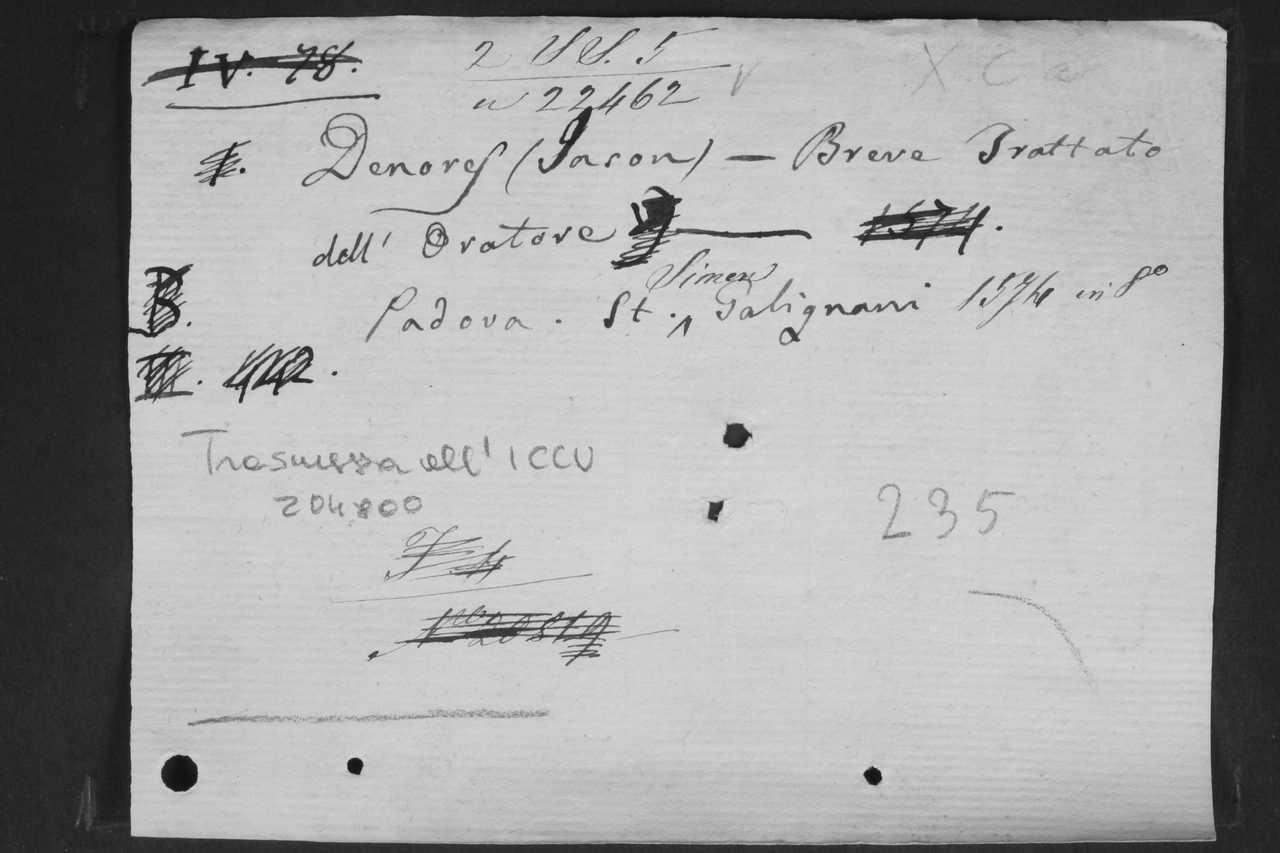 IV. 78.
2 SS. 5
n 22462
X C a
Denores (Jason) — Breve Trattato
dell' Oratore — 1574.
Simon
Padova. St. Galignani 1574 in 8°
B.
442.
Trasmessa all' ICCU
204800
235